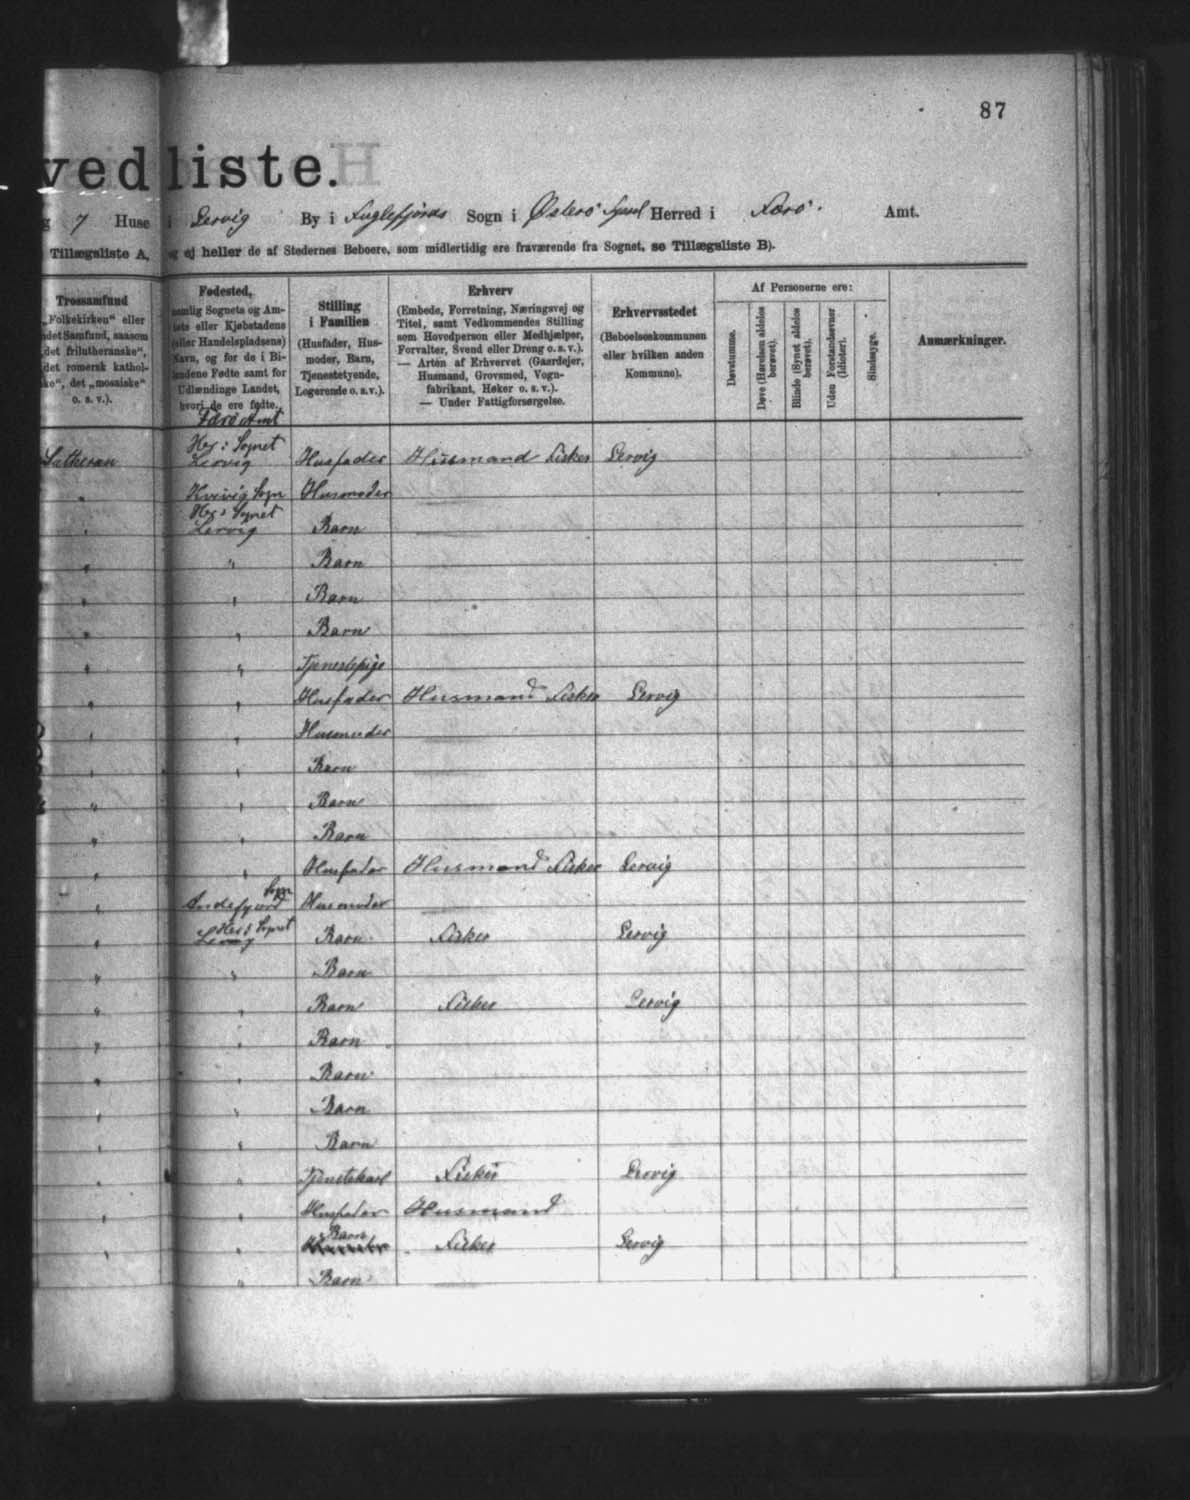 87
vedliste.
g 7 Huse i Lervig By i Fuglefjords Sogn i Østerö Syssel Herred i Færö. Amt.
Tillægsliste A, og ej heller de af Stedernes Beboere, som midlertidig ere fraværende fra Sognet, se Tillægsliste B).
Trossamfund
„Folkekirken“ eller
ndet Samfund, saasom
„det frilutheranske“,
„det romersk kathol-
ske“, det „mosaiske“
o. s. v.).
Fødested,
nemlig Sognets og Am-
tets eller Kjøbstadens
(eller Handelspladsens)
Navn, og for de i Bi-
landene Fødte samt for
Udlændinge Landet,
hvori de ere fødte.
Færö Amt
Stilling
i Familien
(Husfader, Hus-
moder, Barn,
Tjenestetyende,
Logerende o. s. v.).
Erhverv
(Embede, Forretning, Næringsvej og
Titel, samt Vedkommendes Stilling
som Hovedperson eller Medhjælper,
Forvalter, Svend eller Dreng o. s. v.).
— Arten af Erhvervet (Gaardejer,
Husmand, Grovsmed, Vogn-
fabrikant, Høker o. s. v.).
— Under Fattigforsørgelse.
Erhvervsstedet
(Beboelseskommunen
eller hvilken anden
Kommune).
Af Personerne ere:
Døvstumme.
Døve (Hørelsen aldeles
berøvet).
Blinde (Synet aldeles
berøvet).
Uden Forstandsevner
(Idioter).
Sindssyge.
Anmærkninger.
Her i Sognet
Lutheran Lervig Husfader Husmand Fisker Lervig
" Kvivig Sogn Husmoder
Her i Sognet
" Lervig Barn
" " Barn
" " Barn
" " Barn
" " Tjenestepige
" " Husfader Husmand Fisker Lervig
" " Husmoder
" " Barn
" " Barn
" " Barn
" " Husfader Husmand Fisker Lervig
Sogn
" Andefjord Husmoder
Her i Sognet
" Lervig Barn Fisker Lervig
" " Barn
" " Barn Fisker Lervig
" " Barn
" " Barn
" " Barn
" " Barn
" " Tjenstekarl Fisker Lervig
" " Husfader Husmand
" " Barn Fisker Lervig
" Barn